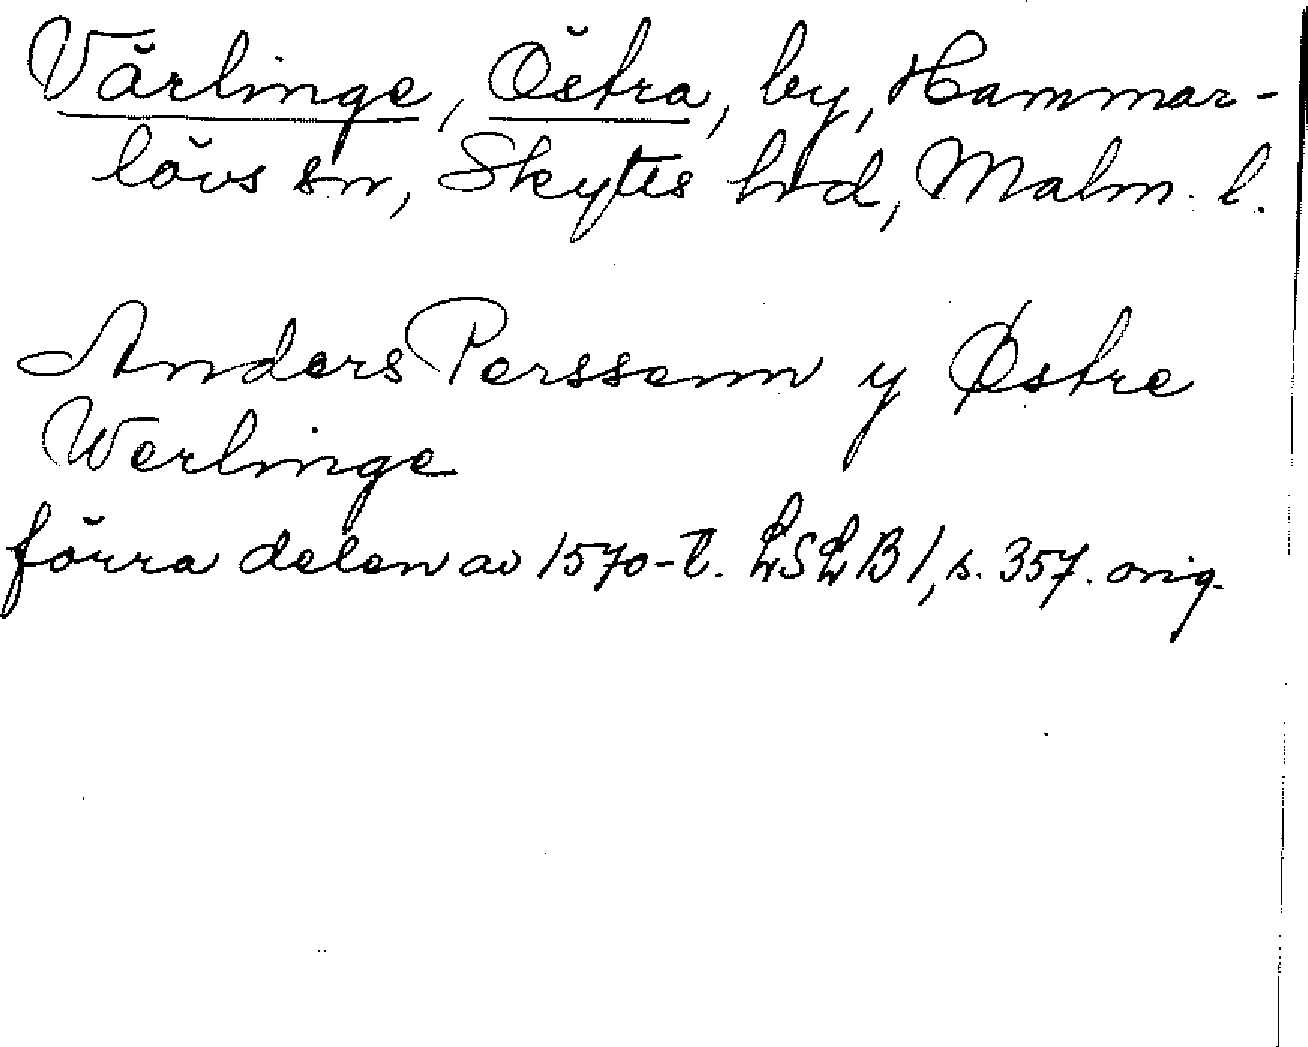 Värlinge, Östra, by, Hammar-
lövs sn, Skytts hrd, Malm. l.
Anders Perssenn y Østre
Werlinge
förra delen av 1570-t. LSLB 1, s. 357. orig.